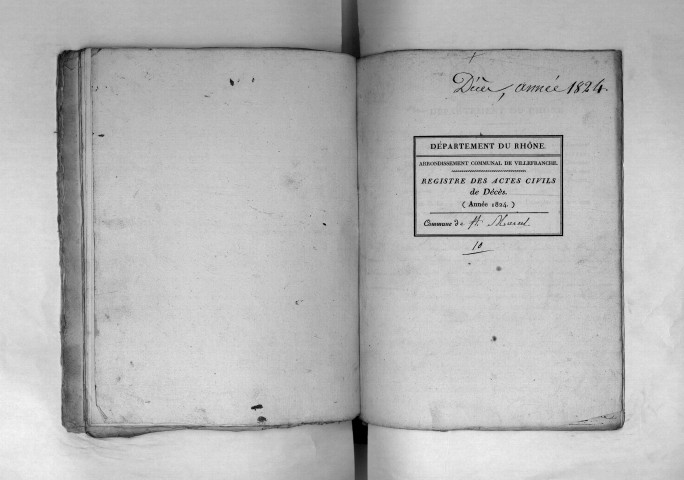 Décès, année 1824
DÉPARTEMENT DU RHÔNE.
ARRONDISSEMENT COMMUNAL DE VILLEFRANCHE.
REGISTRE DES ACTES CIVILS
de Décès.
( Année 1824. )
Commune de St.
10